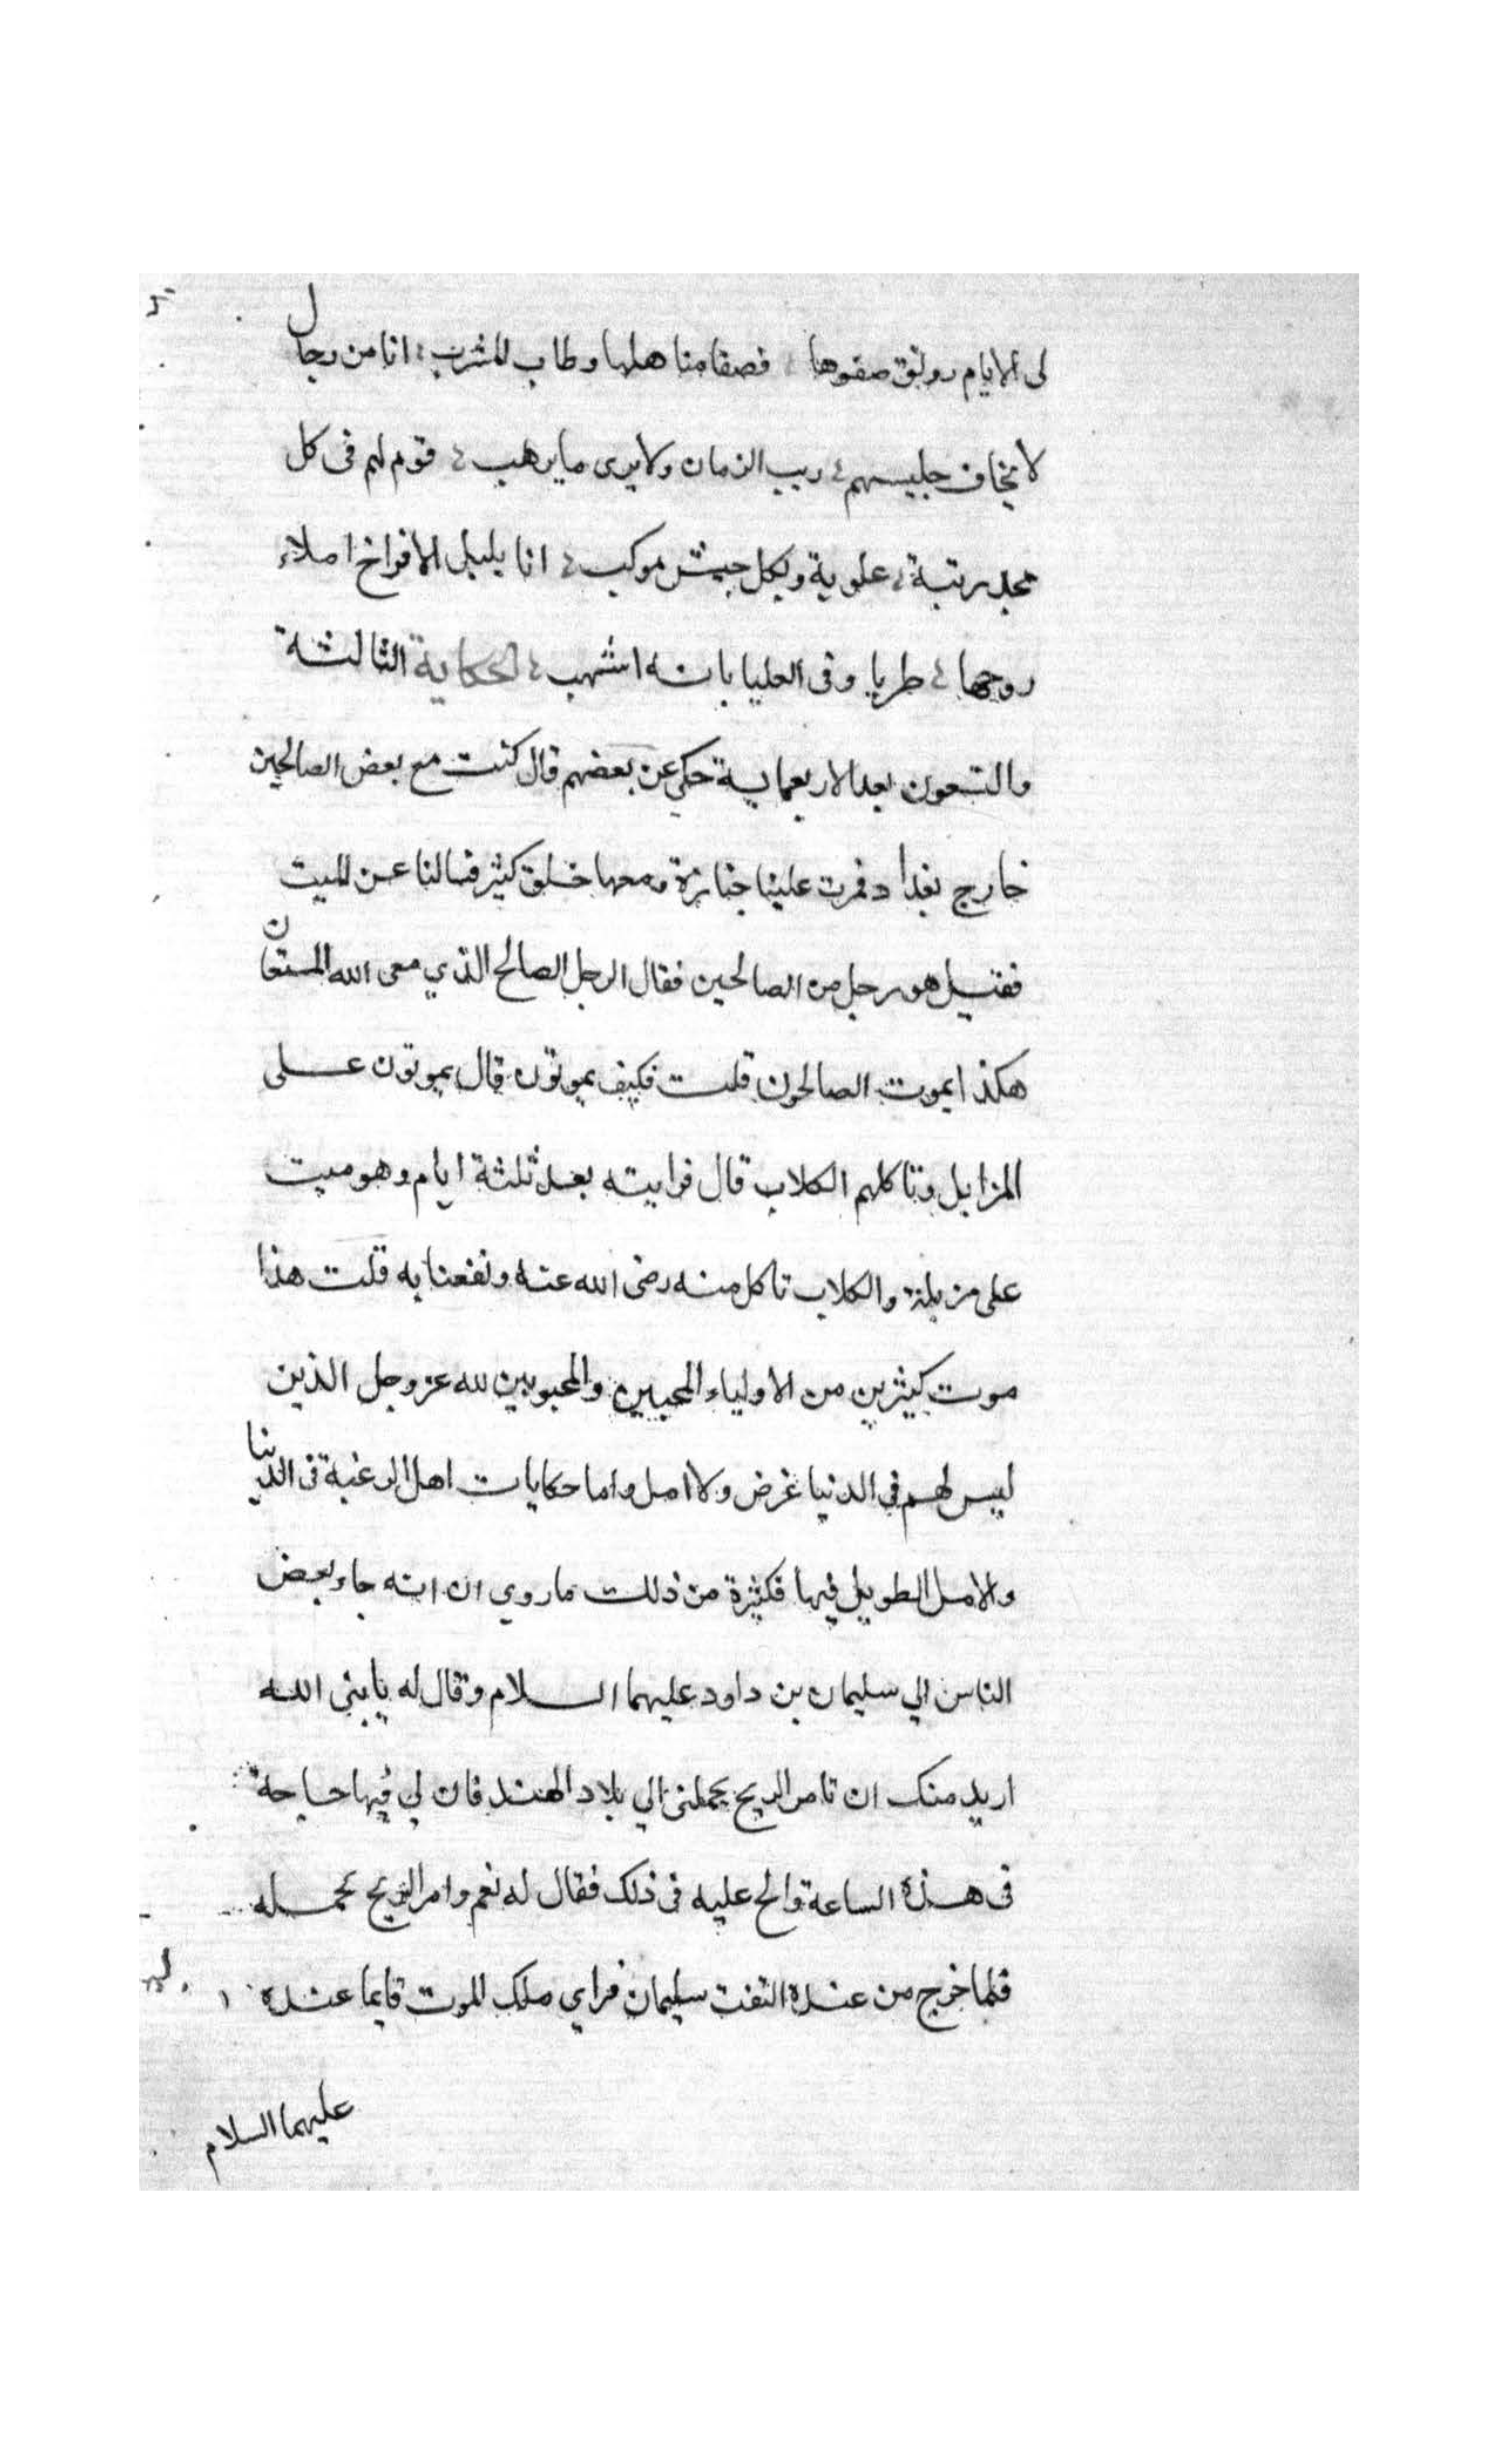 لى الايام رونق صفوها فصفا مناهلها وطاب المشرب انا من رجال
لا يخاف جليسهم ريب الزمان ولا يرى ما يرهب قوم لهم فى كل
مجد رتبة علوية وبكل جيش موكب انا بلبل الافراخ املاء
روحها طربا وفى العليا بانه اشهب الحكاية الثالثة
والتسعون بعد الاربعماية حكى عن بعضهم قال كنت مع بعض الصالحين
خارج بغداد فمرت علينا جنازة ومعها خلق كثير فسالنا عن الميت
فقيل هو رجل من الصالحين فقال الرجل الصالح الذي معى الله المستعان
هكذا يموت الصالحون قلت فكيف يموتون قال يموتون على
المزابل وتاكلهم الكلاب قال فرايته بعد ثلثة ايام وهو ميت
على مزبلة والكلاب تاكل منه رضى الله عنه ونفعنا به قلت هذا
موت كثيرين من الاولياء المحبين والمحبوبين لله عز وجل الذين
ليس لهم في الدنيا غرض ولا امل واما حكايات اهل الرغبة فى الدنيا
والامل الطويل فيها فكثيرة من ذلك ما روي ان انه جاء بعض
الناس الي سليمان بن داود عليهما السلام وقال له يا بنى الله
اريد منك ان تامر الريح يحملنى الي بلاد الهند فان لي فيها حاجة
فى هذه الساعة والح عليه فى ذلك فقال له نعم وامر الريح تحمله
فلما خرج من عنده التفت سليمان فراي ملك الموت قايما عنده
عليهما السلام